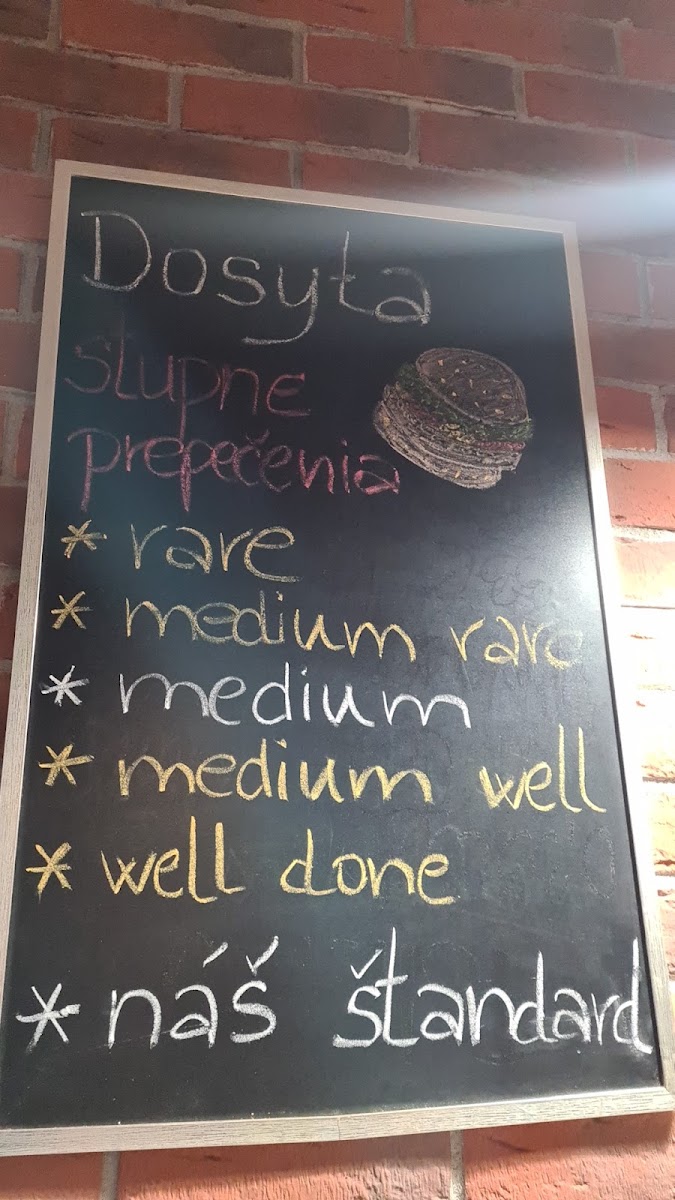 Dosyta
stupne
prepečenia
* rare
* medium rare
* medium
* medium well
* well done
* náš štandard